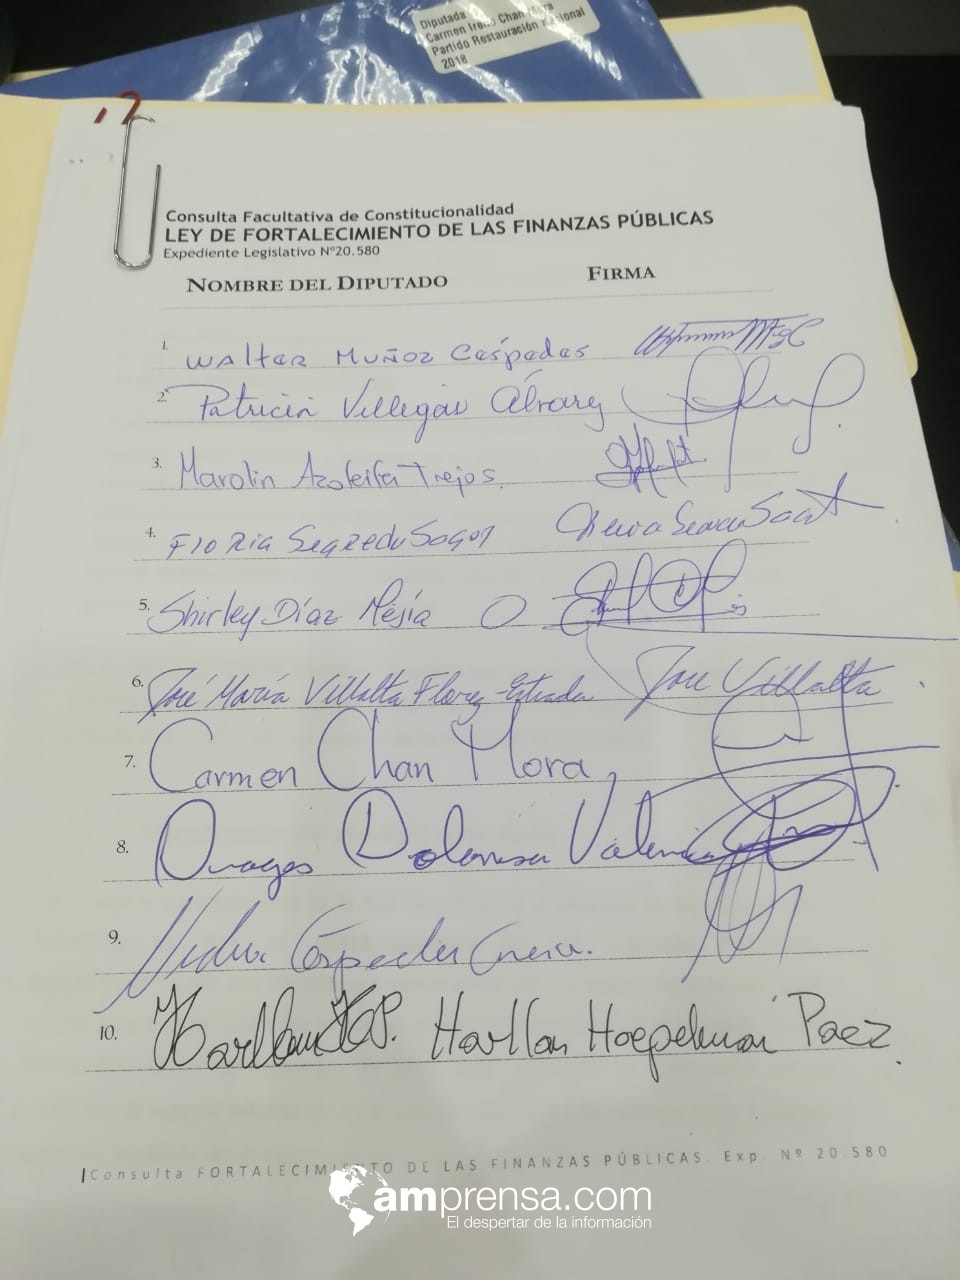 Diputada
Carmen Irene Chan Mora
Partido Restauración Nacional
2018
Consulta Facultativa de Constitucionalidad
LEY DE FORTALECIMIENTO DE LAS FINANZAS PÚBLICAS
Expediente Legislativo Nº20.580
NOMBRE DEL DIPUTADO FIRMA
1. Walter Muñoz Céspedes
2. Patricia Villegas Álvarez
3. Marolin Azofeifa Trejos.
4. Floria Segreda Sagot
5. Shirley Díaz Mejía
6. José María Villalta Florez-Estrada José Villalta
7. Carmen Chan Mora,
8. Dragos Dolanescu Valenciano
9. Céspedes
10. Harllan Hoepelman Paez.
Consulta FORTALECIMIENTO DE LAS FINANZAS PÚBLICAS. Exp. Nº 20.580
amprensa.com
El despertar de la información